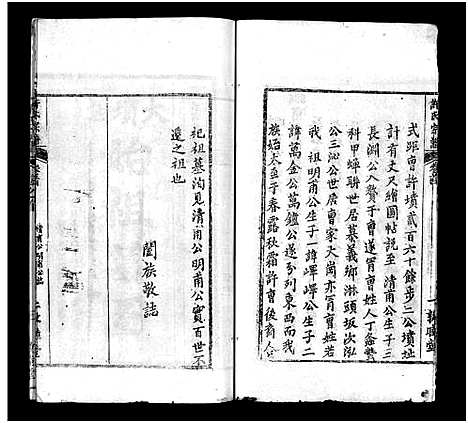 許氏宗譜
式距曹許墳貳百六十餘步二公墳址
計有丈尺繪圖帖説至清甫公生子二
長淵公入贅于曹遂冒曹姓人丁蕃盛
科甲蟬聯世居慕義鄉淋頭坂次泓
公三沁公世居曹家大嵩亦冒曹姓若
我祖明甫公生子一諱嶧嶧公生子二
諱萬金公萬鎰公遂分列東西而我
族始大至于春露秋霜許曹後裔共
祀祖墓洵見清甫公明甫公實百世不
遷之祖也
闔族敬誌